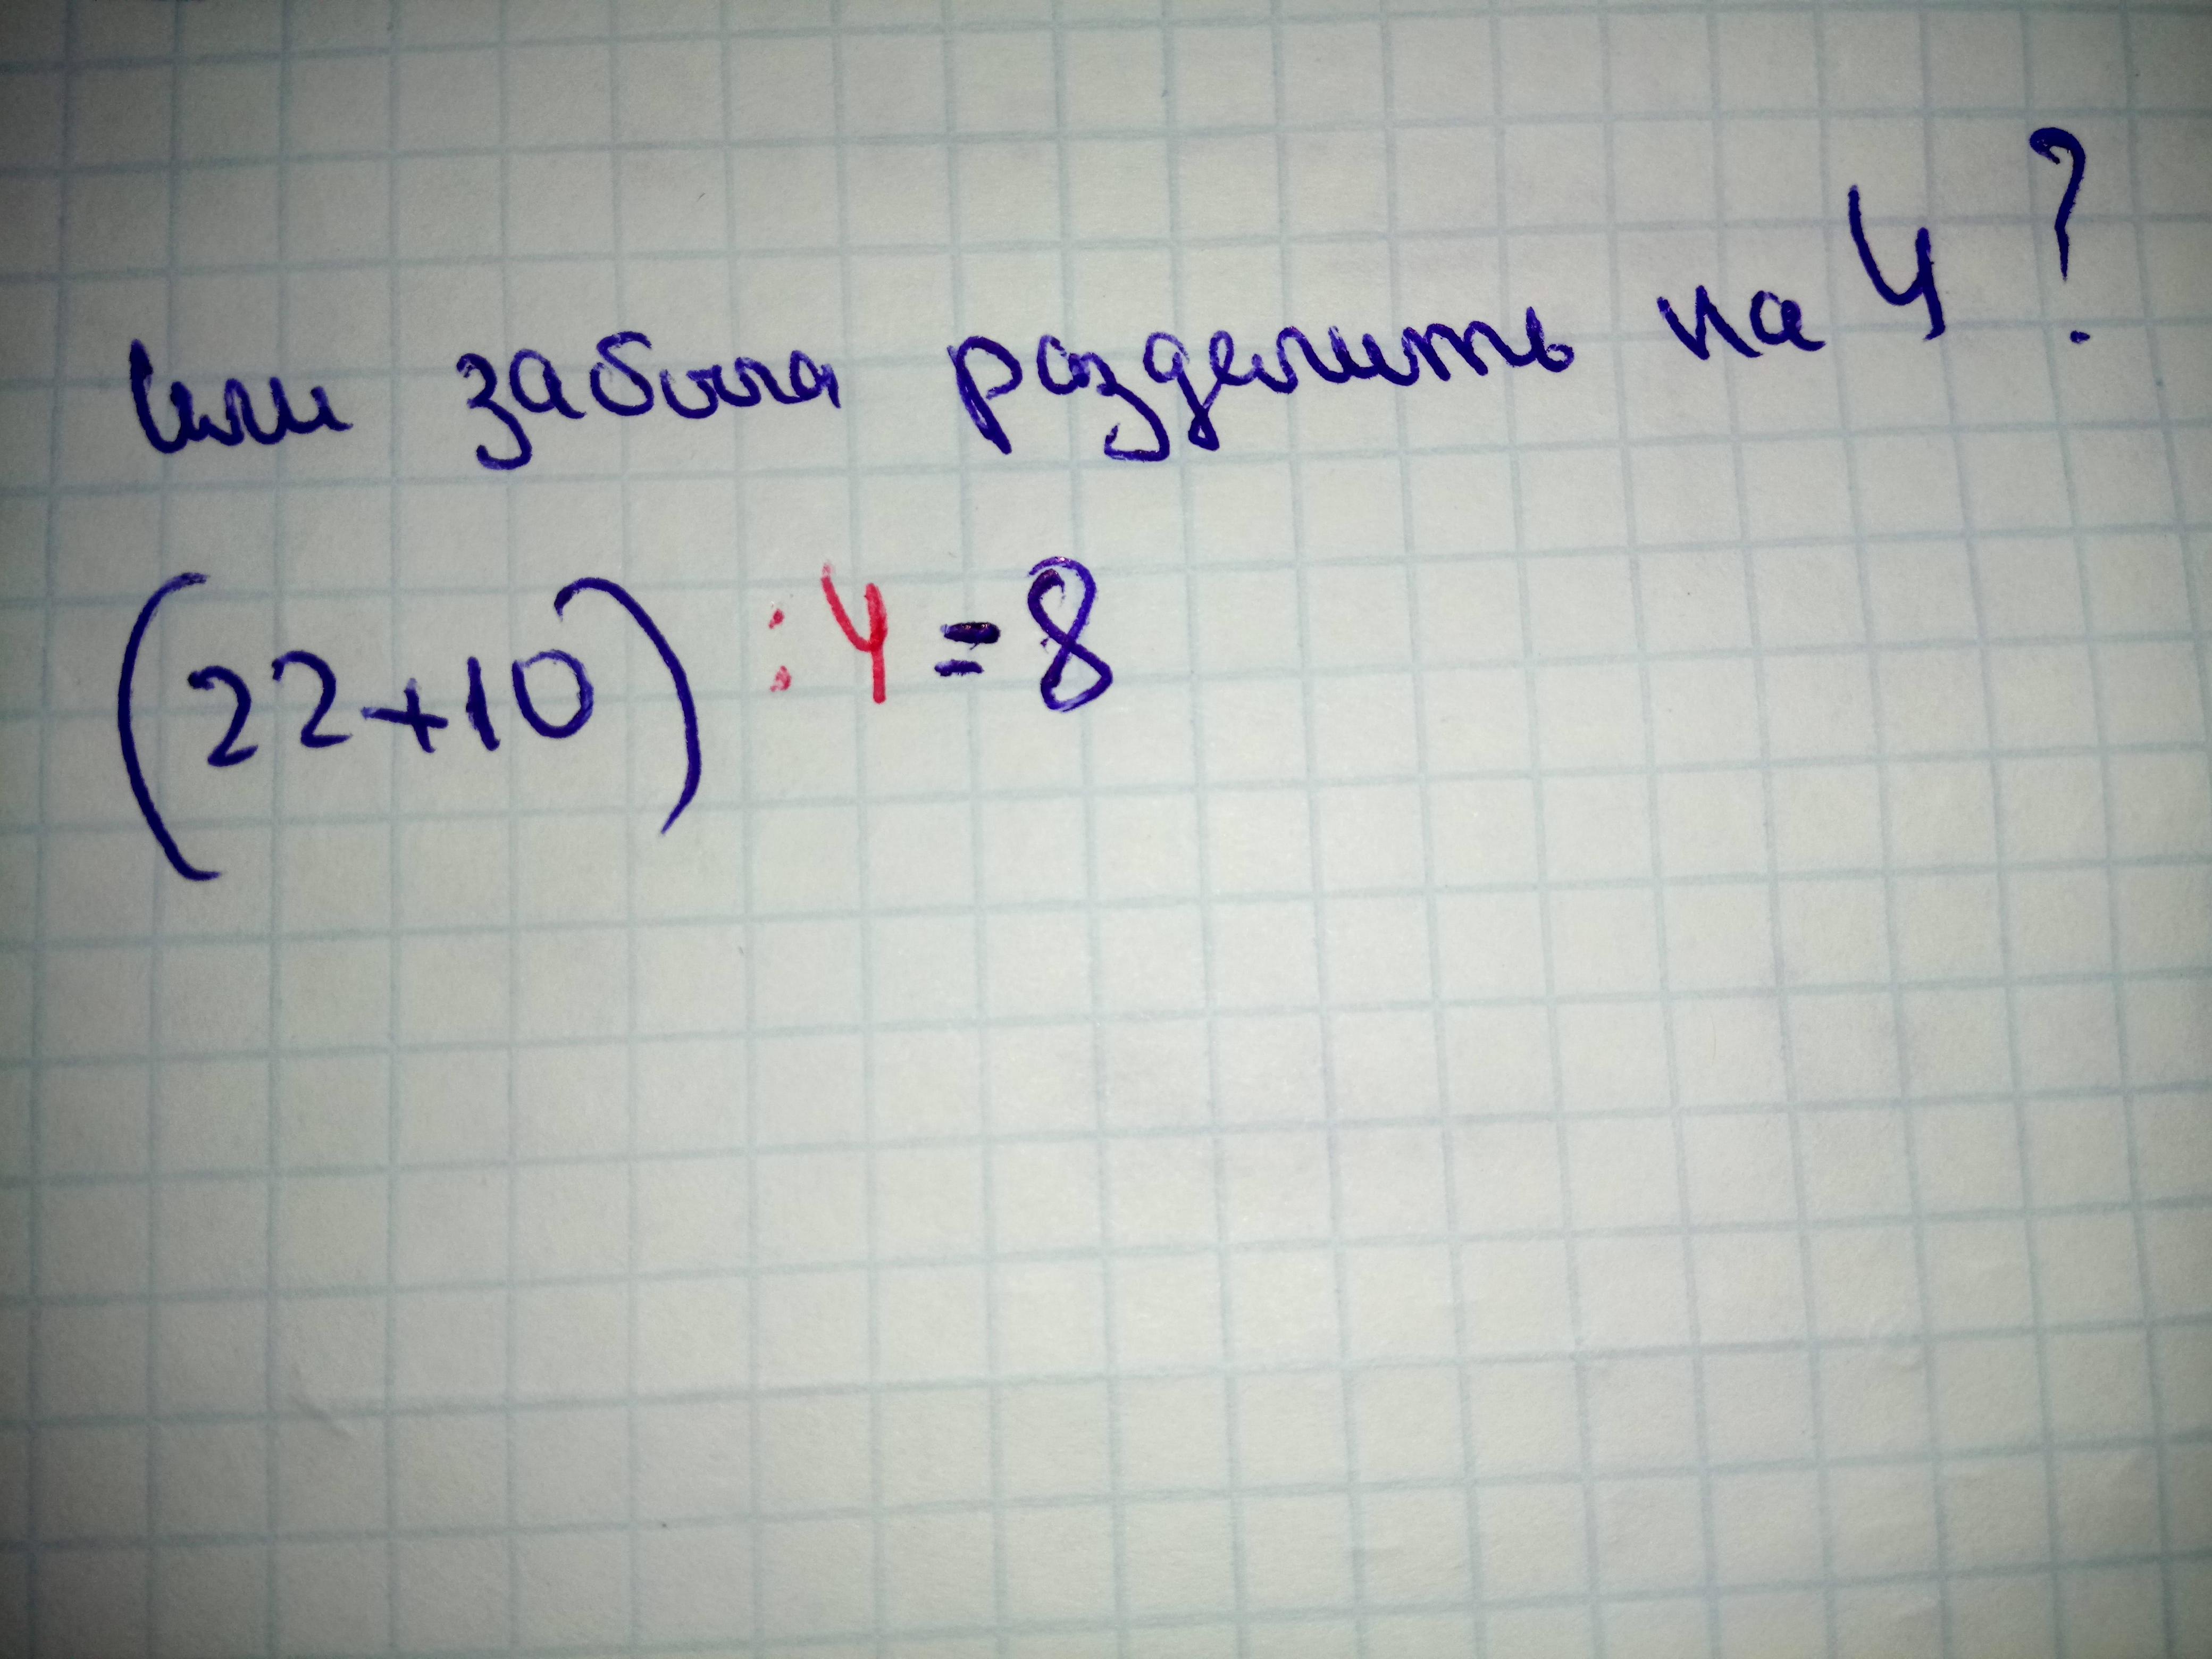 или забыла разделить на 4 ?
(22+10) : 4 = 8